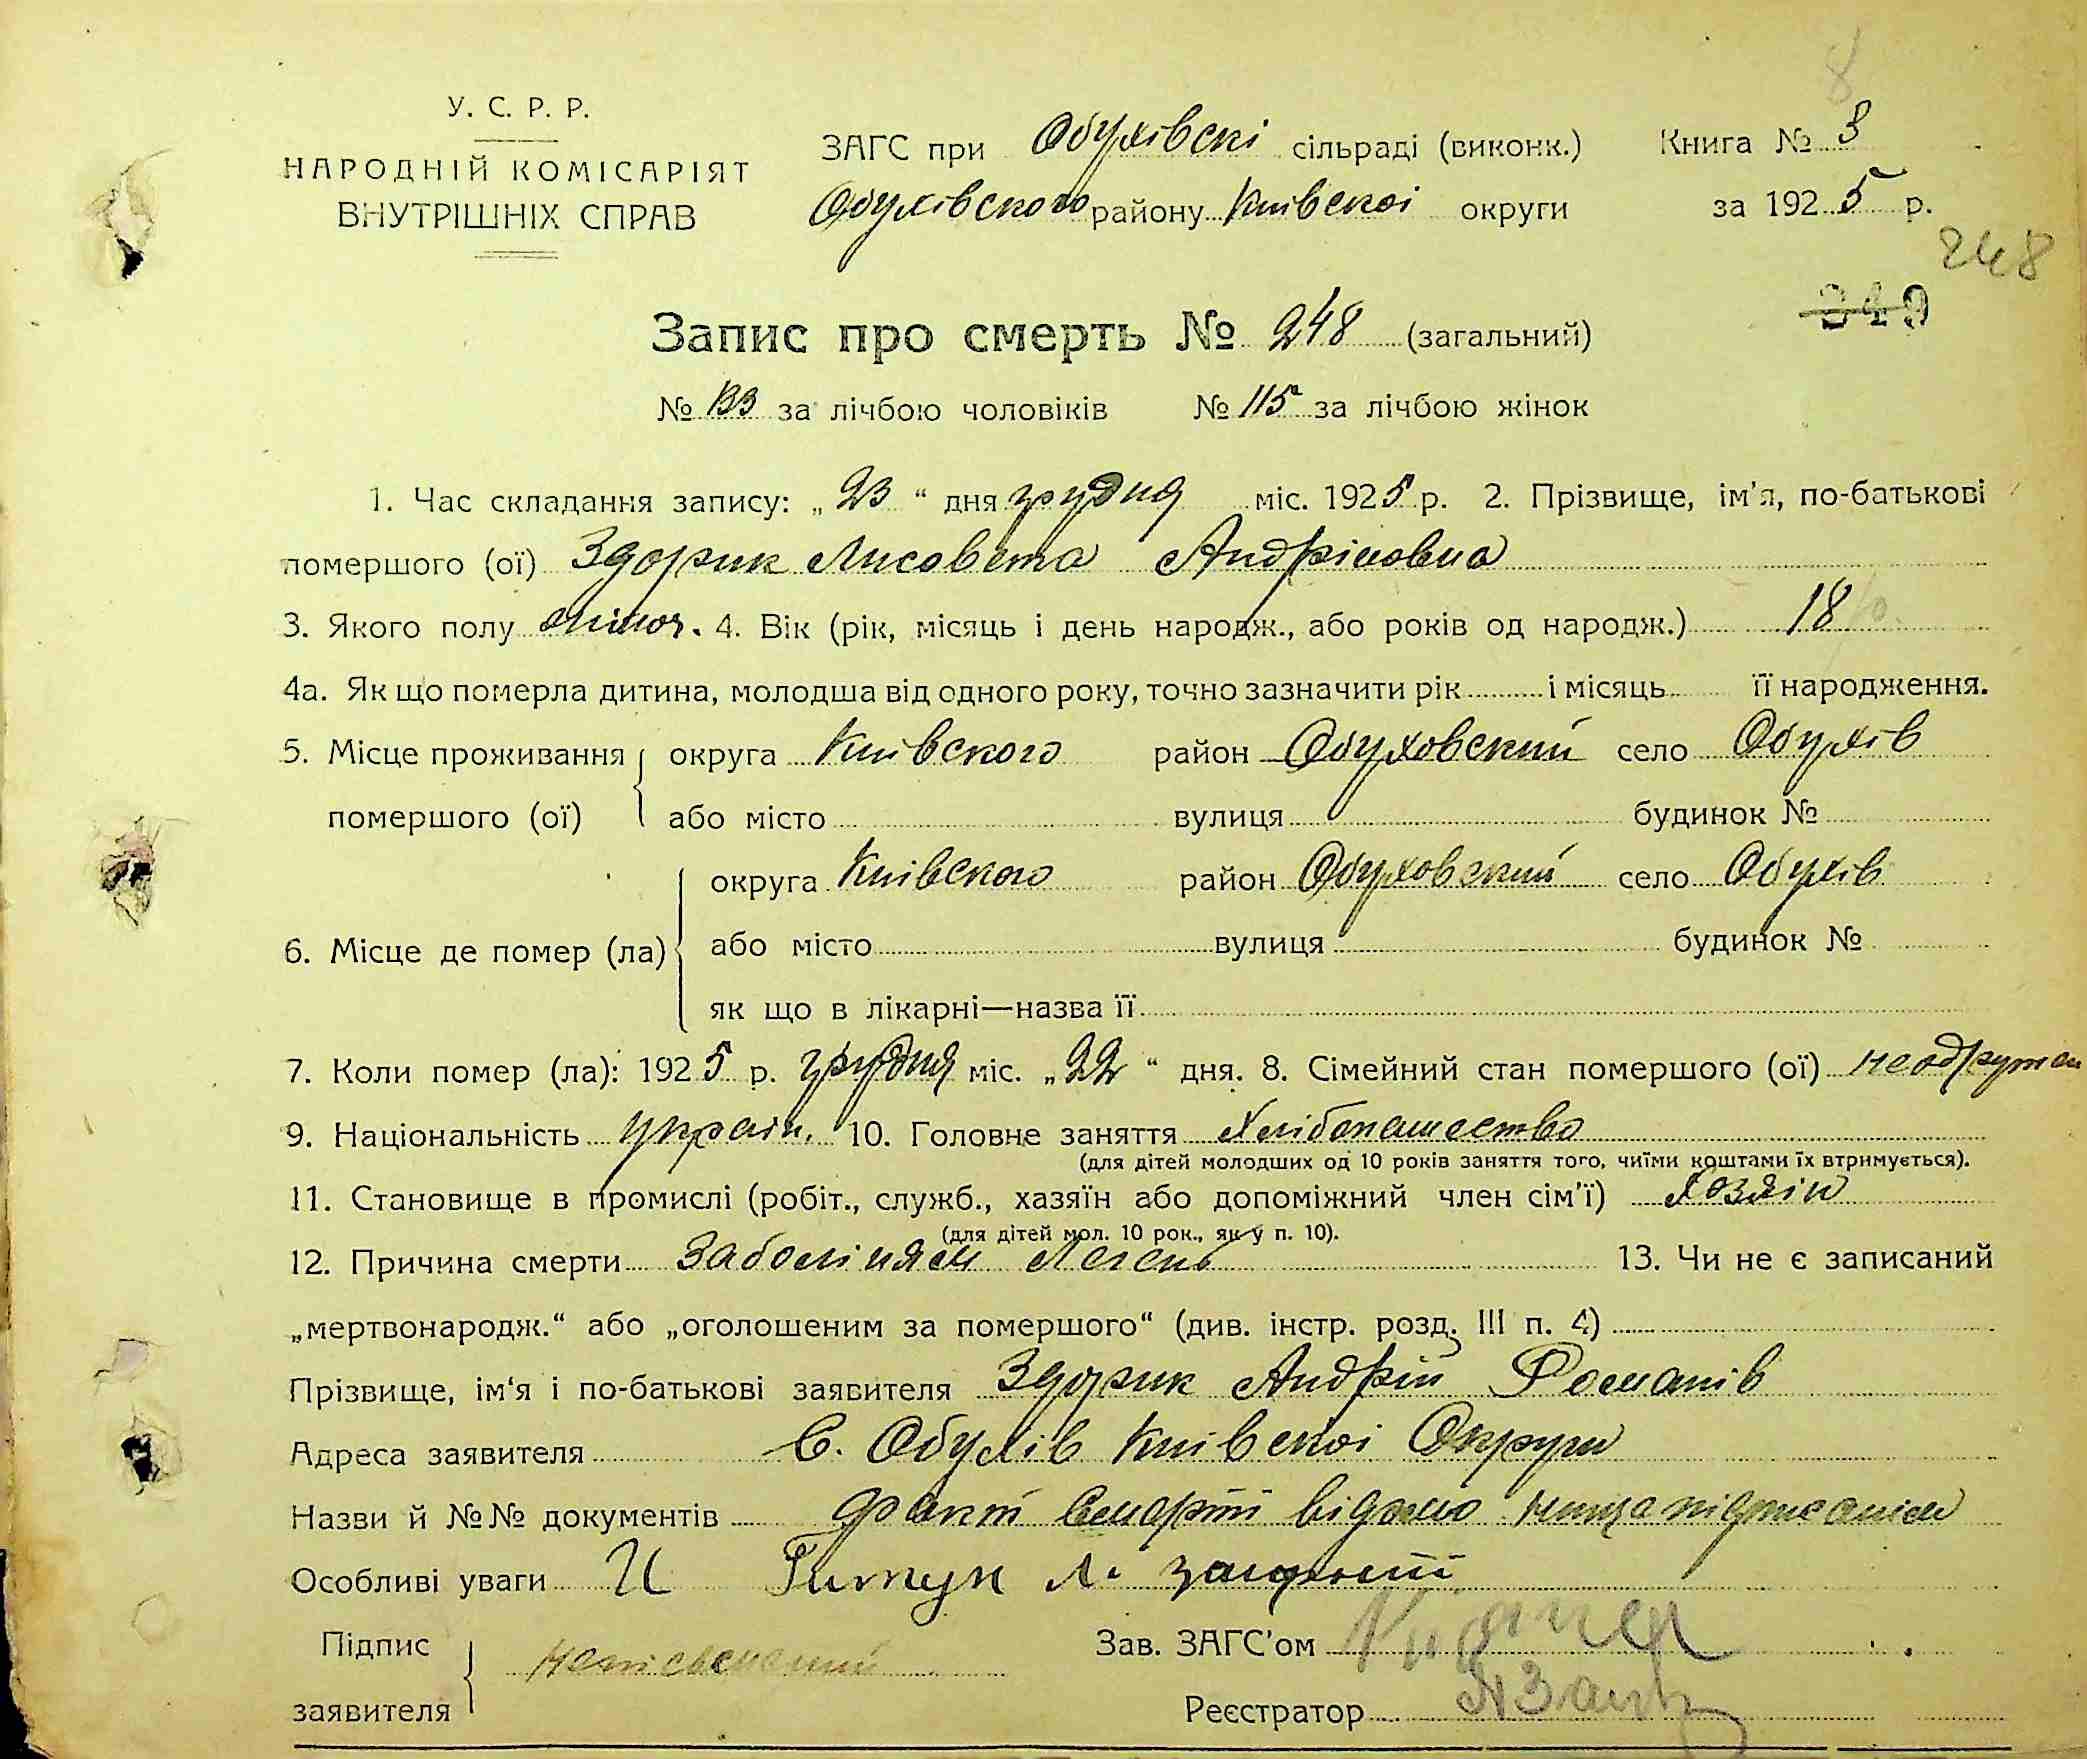 8
У. С. Р. Р.
НАРОДНІЙ КОМІСАРІЯТ
ВНУТРІШНІХ СПРАВ
ЗАГС при Обухівскі сільраді (виконк.) Книга № 3
Обухівского району Київскоі округи за 1925 р.
248
349
Запис про смерть № 248 (загальний)
№ 133 за лічбою чоловіків № 115 за лічбою жінок
1. Час складання запису: „23“ дня грудня міс. 1925 р. 2. Прізвище, ім’я, по-батькові
помершого (ої) Здорик Лисовета Андріїовна
3. Якого полу жіноч. 4. Вік (рік, місяць і день народж., або років од народж.) 18
4а. Як що померла дитина, молодша від одного року, точно зазначити рік і місяць її народження.
5. Місце проживання округа Київского район Обуховский село Обухів
помершого (ої) або місто вулиця будинок №
округа Київского район Обуховский село Обухів
6. Місце де помер (ла) або місто вулиця будинок №
як що в лікарні—назва її
7. Коли помер (ла): 1925 р. грудня міс. „22“ дня. 8. Сімейний стан помершого (ої) неодружен
9. Національність украін. 10. Головне заняття Хлібопашество
(для дітей молодших од 10 років заняття того, чиїми коштами їх втримується).
11. Становище в промислі (робіт., служб., хазяїн або допоміжний член сім’ї) Хозяін
(для дітей мол. 10 рок., як у п. 10).
12. Причина смерти Заболіням Легень 13. Чи не є записаний
„мертвонародж.“ або „оголошеним за помершого“ (див. інстр. розд. III п. 4)
Прізвище, ім‘я і по-батькові заявителя Здорик Андрій Романів
Адреса заявителя С. Обухів Київскоі Округи
Назви й №№ документів Факт Смерти відомо
Особливі уваги И
Підпис неписьменний Зав. ЗАГС’ом
заявителя Реєстратор